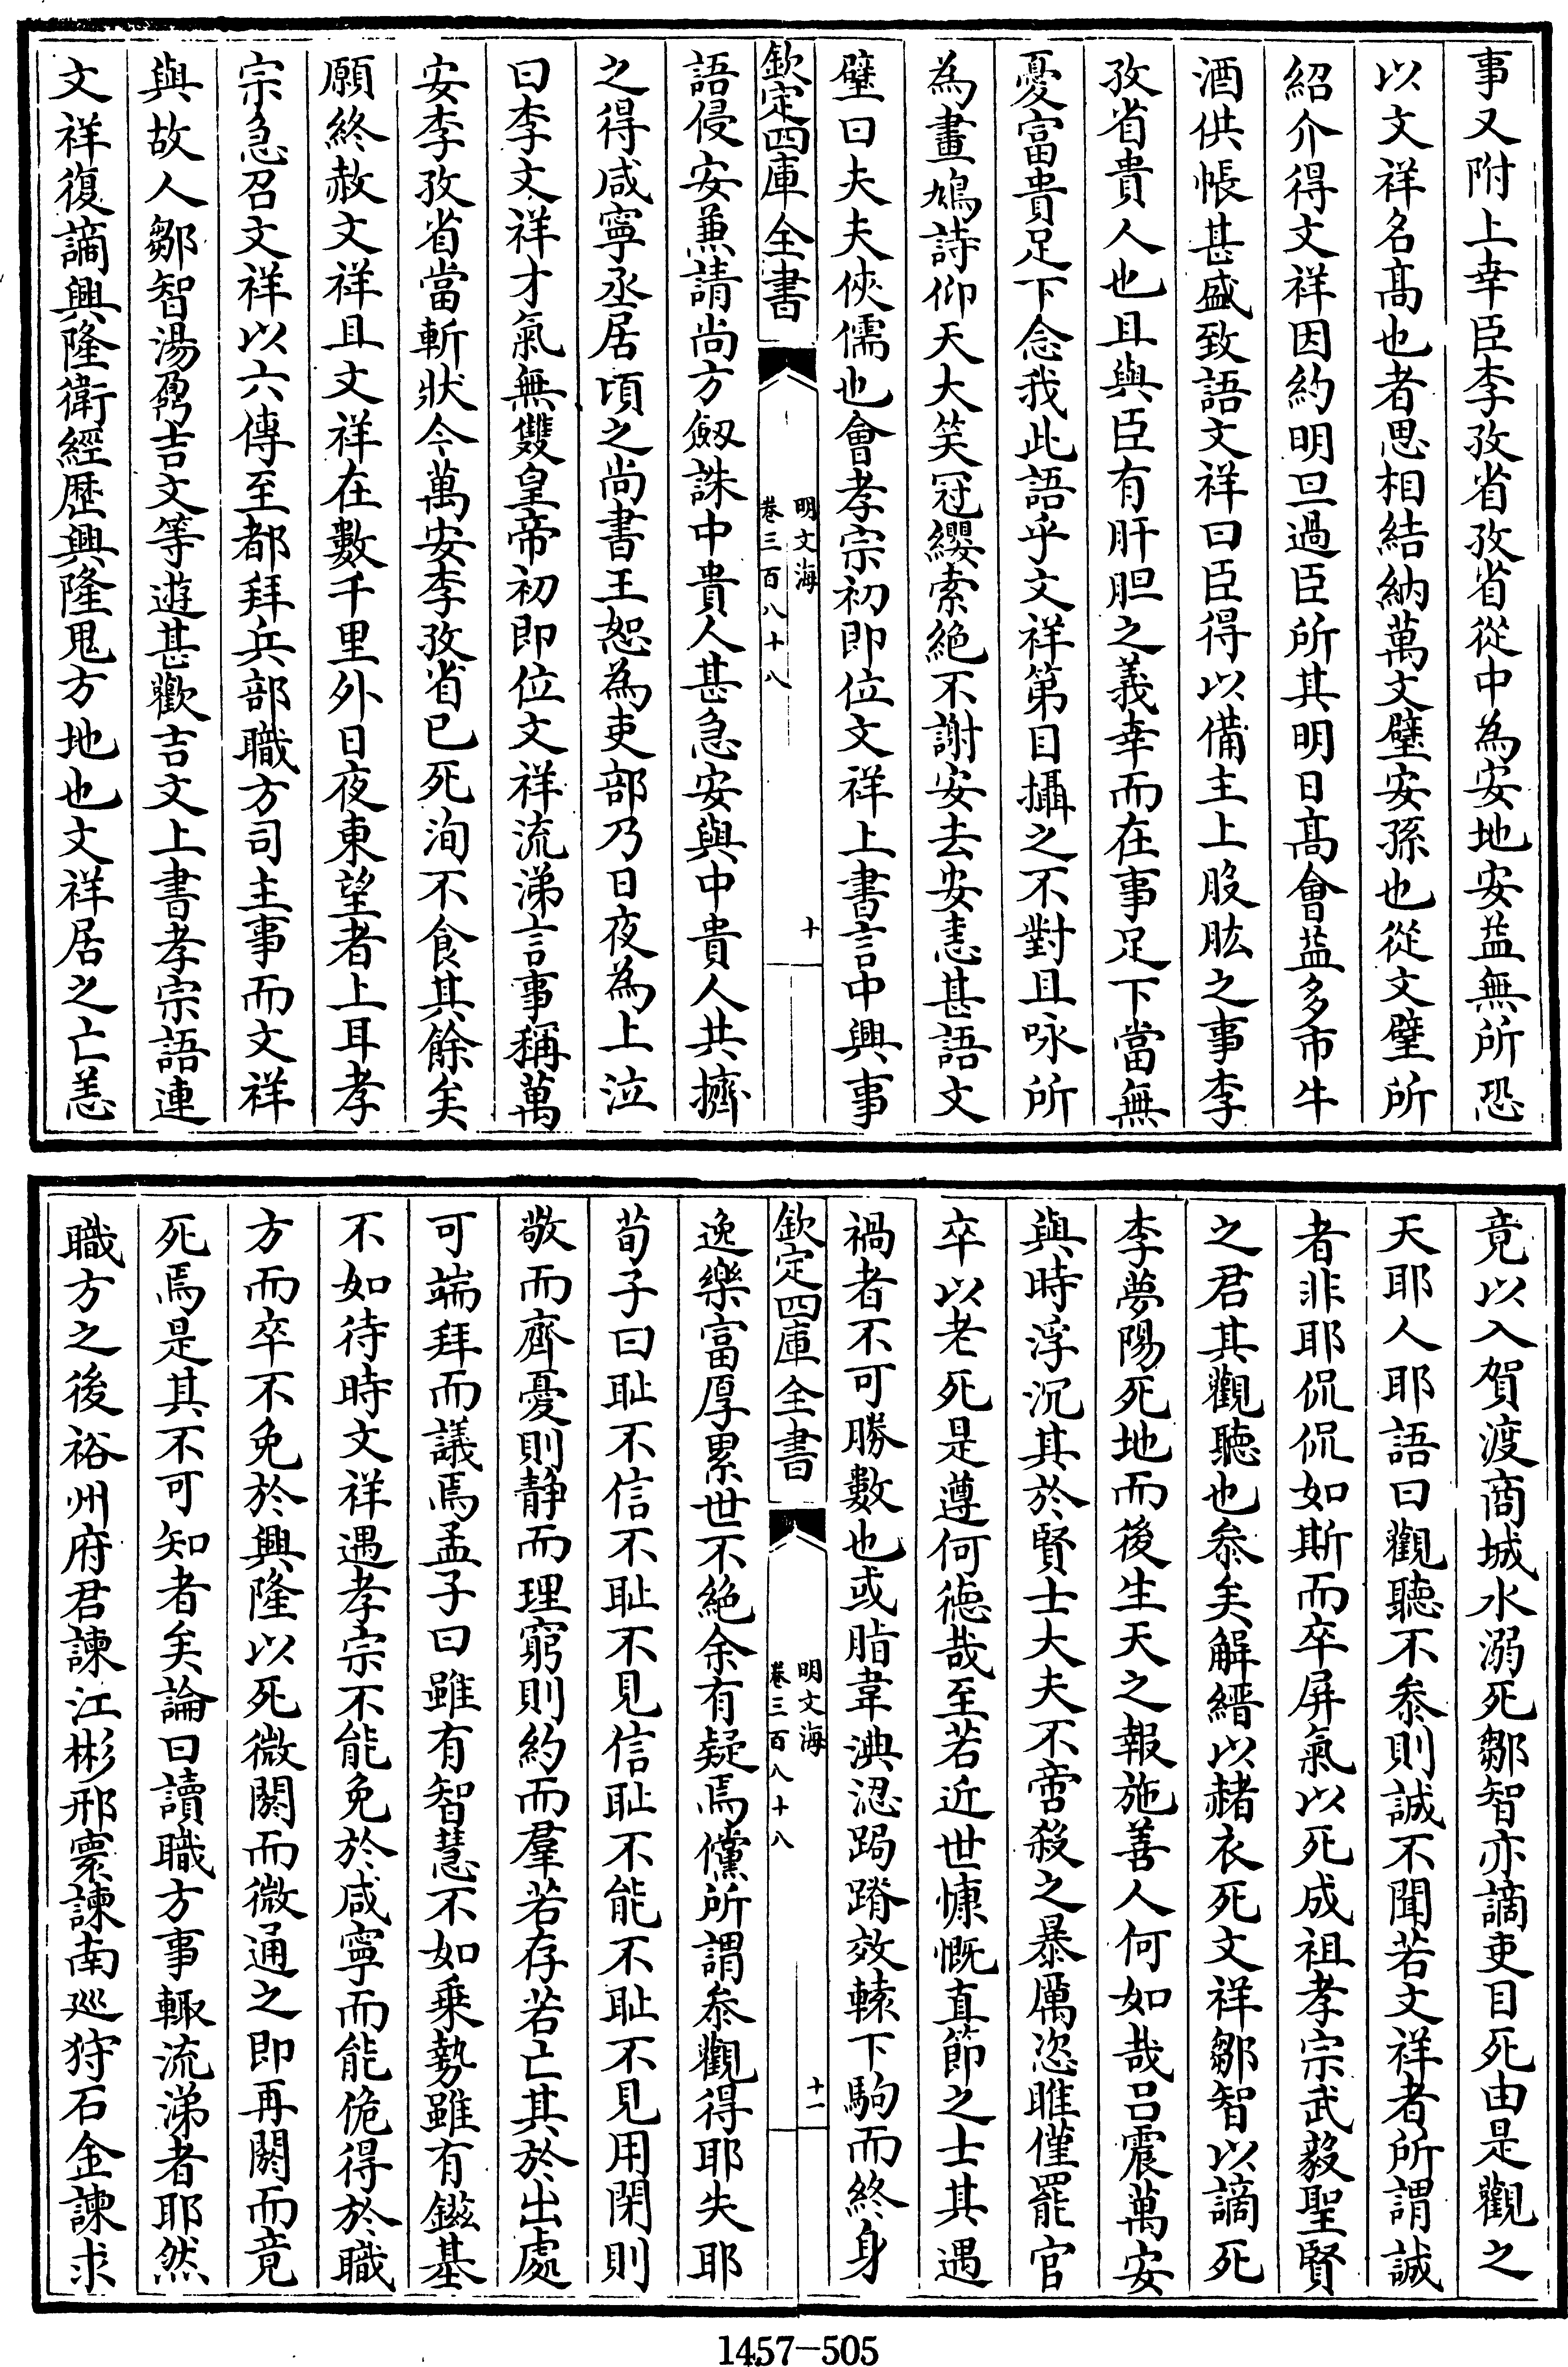 事又附上幸臣李孜省孜省從中為安地安益無所恐
以文祥名髙也者思相結納萬文璧安孫也從文璧所
紹介得文祥因約明旦過臣所其明日髙會益多市牛
酒供帳甚盛致語文祥曰臣得以備主上股肱之事李
孜省貴人也且與臣有肝胆之義幸而在事足下當無
憂富貴足下念我此語乎文祥第目攝之不對且咏所
為畫鳩詩仰天大笑冠纓索絶不謝安去安恚甚語文
璧曰夫夫俠儒也會孝宗初即位文祥上書言中興事
欽定四庫全書
明文海
卷三百八十八
十
語侵安兼請尚方劔誅中貴人甚急安與中貴人共擠
之得咸寧丞居頃之尚書王恕為吏部乃日夜為上泣
曰李文祥才氣無雙皇帝初即位文祥流涕言事稱萬
安李孜省當斬狀今萬安李孜省已死洵不食其餘矣
願終赦文祥且文祥在數千里外日夜東望者上耳孝
宗急召文祥以六傳至都拜兵部職方司主事而文祥
與故人鄒智湯鼐吉文等遊甚歡吉文上書孝宗語連
文祥復謫興隆衛經歴興隆鬼方地也文祥居之亡恙
竟以入賀渡商城水溺死鄒智亦謫吏目死由是觀之
天耶人耶語曰觀聽不叅則誠不聞若文祥者所謂誠
者非耶侃侃如斯而卒屏氣以死成祖孝宗武毅聖賢
之君其觀聽也叅矣解縉以赭衣死文祥鄒智以謫死
李夢陽死地而後生天之報施善人何如哉呂震萬安
與時浮沉其於賢士大夫不啻殺之暴厲恣睢僅罷官
卒以老死是遵何德哉至若近世慷慨直節之士其遇
禍者不可勝數也或脂韋淟涊跼蹐效轅下駒而終身
欽定四庫全書
明文海
卷三百八十八
十一
逸樂富厚累世不絶余有疑焉儻所謂叅觀得耶失耶
荀子曰耻不信不耻不見信耻不能不耻不見用閑則
敬而齊憂則静而理窮則約而羣若存若亡其於出處
可端拜而議焉孟子曰雖有智慧不如乗勢雖有鎡基
不如待時文祥遇孝宗不能免於咸寧而能俛得於職
方而卒不免於興隆以死微閼而微通之即再閼而竟
死焉是其不可知者矣論曰讀職方事輙流涕者耶然
職方之後裕州府君諫江彬邢寰諫南廵狩石金諫求
1457-505